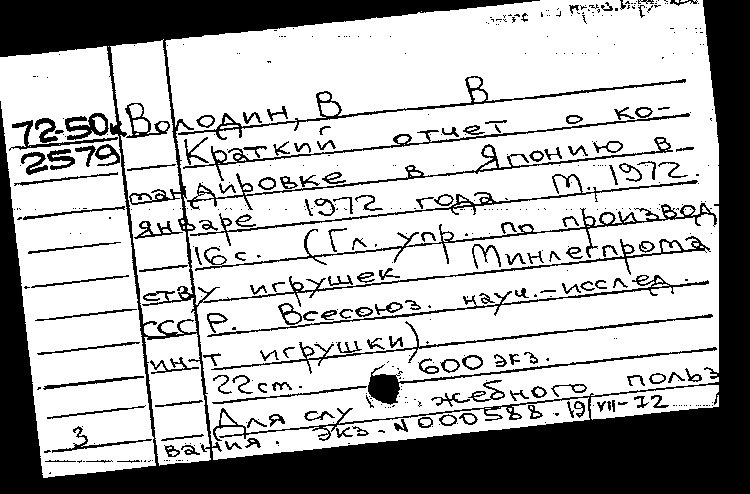 72-50к Володин, В В
2579 Краткий отчет о ко-
мандировке в Японию в
январе 1972 года. М., 1972.
16 с. (Гл. упр. по производ-
ству игрушек Минлегпрома
СССР. Всесоюз. науч.-исслед.
ин-т игрушки).
22 см. 600 экз.
Для служебного польз
3 вания. экз. N000588. 19/VII-72